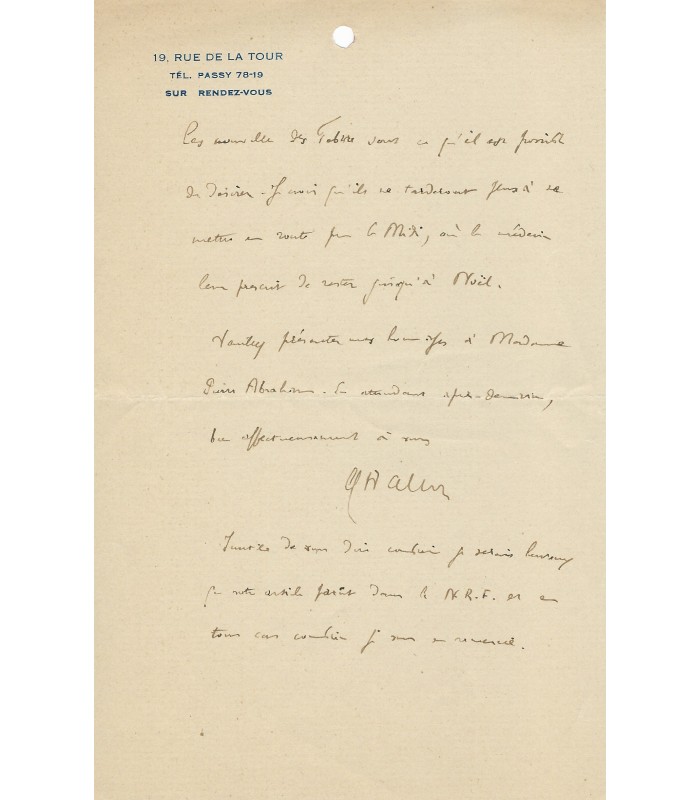 19, RUE DE LA TOUR
TÉL. PASSY 78-19
SUR RENDEZ-VOUS
Les nouvelles des sont ce qu'il est possible
de désirer. Je crois qu'ils ne tarderont plus à se
mettre en route pour le Midi, où le médecin
leur prescrit de rester jusqu'à Noël.
Veuillez présenter mes hommages à Madame
Pierre Abraham. En attendant après-demain,
bien affectueusement à vous
Inutile de vous dire combien je serais heureux
que votre article parût dans la N.R.F. et en
tous cas combien je vous en remercie.